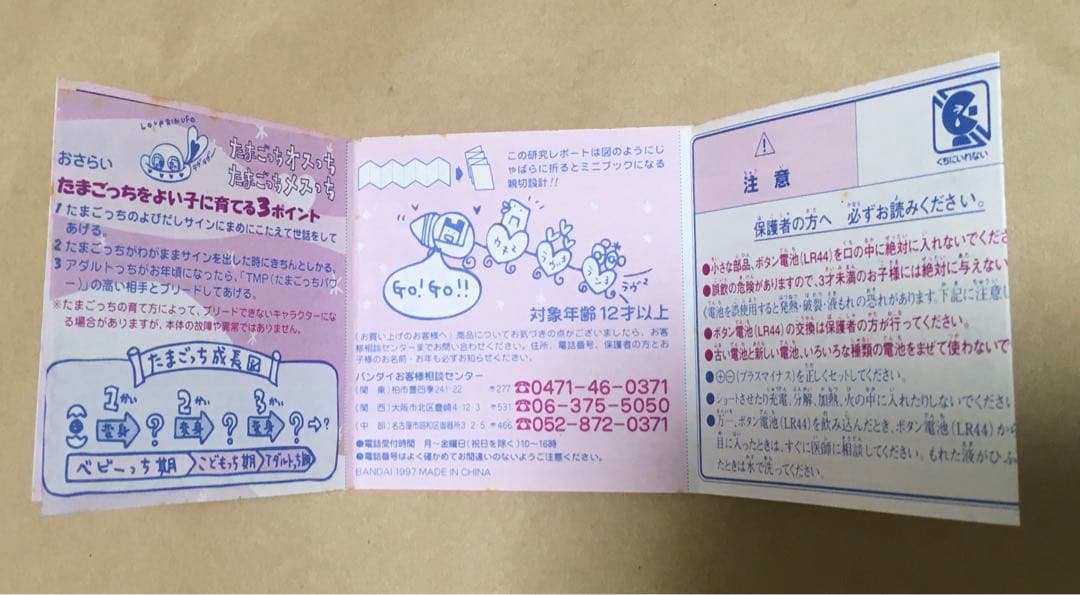 LOVERINUFO
たまごっちオスっち
たまごっちメスっち
おさらい
たまごっちをよい子に育てる3ポイント
1 たまごっちのよびだしサインにまめにこたえて世話をして
あげる。
2 たまごっちがわがままサインを出した時にきちんとしかる。
3 アダルトっちがお年頃になったら、「TMP(たまごっちパワ
ー)」の高い相手とブリードしてあげる。
※たまごっちの育て方によって、ブリードできないキャラクターにな
る場合がありますが、本体の故障や異常ではありません。
たまごっち成長図
1かい 2かい 3かい
変身 ? 変身 ? 変身 ? ⇨?
ベビーっち期 こどもっち期 アダルトっち期
この研究レポートは図のようにじ
ゃばらに折るとミニブックになる
親切設計!!
GO!GO!!
ラヴ2
対象年齢12才以上
〈お買い上げのお客様へ〉商品についてお気づきの点がございましたら、お客
様相談センターまでお問い合わせください。住所、電話番号、保護者の方とお
子様のお名前・お年も必ずお知らせください。
バンダイお客様相談センター
(関 東)柏市豊四季241-22 〒277 ☎0471-46-0371
(関 西)大阪市北区豊崎4-12-3 〒531 ☎06-375-5050
(中 部)名古屋市昭和区御器所3-2-5 〒466 ☎052-872-0371
●電話受付時間 月〜金曜日(祝日を除く)10〜16時
●電話番号はよく確かめてお間違いのないようご注意ください。
BANDAI 1997 MADE IN CHINA
くちにいれない
注意
保護者の方へ 必ずお読みください。
●小さな部品、ボタン電池(LR44)を口の中に絶対に入れないでくださ
●誤飲の危険がありますので、3才未満のお子様には絶対に与えない
〈電池を誤使用すると発熱・破裂・液もれの恐れがあります。下記に注意し
●ボタン電池(LR44)の交換は保護者の方が行ってください。
●古い電池と新しい電池、いろいろな種類の電池をまぜて使わないで
●⊕⊖(プラスマイナス)を正しくセットしてください。
●ショートさせたり充電、分解、加熱、火の中に入れたりしないでくだ
●万一、ボタン電池(LR44)を飲み込んだとき、ボタン電池(LR44)から
目に入ったときは、すぐに医師に相談してください。もれた液がひふ
たときは水で洗ってください。